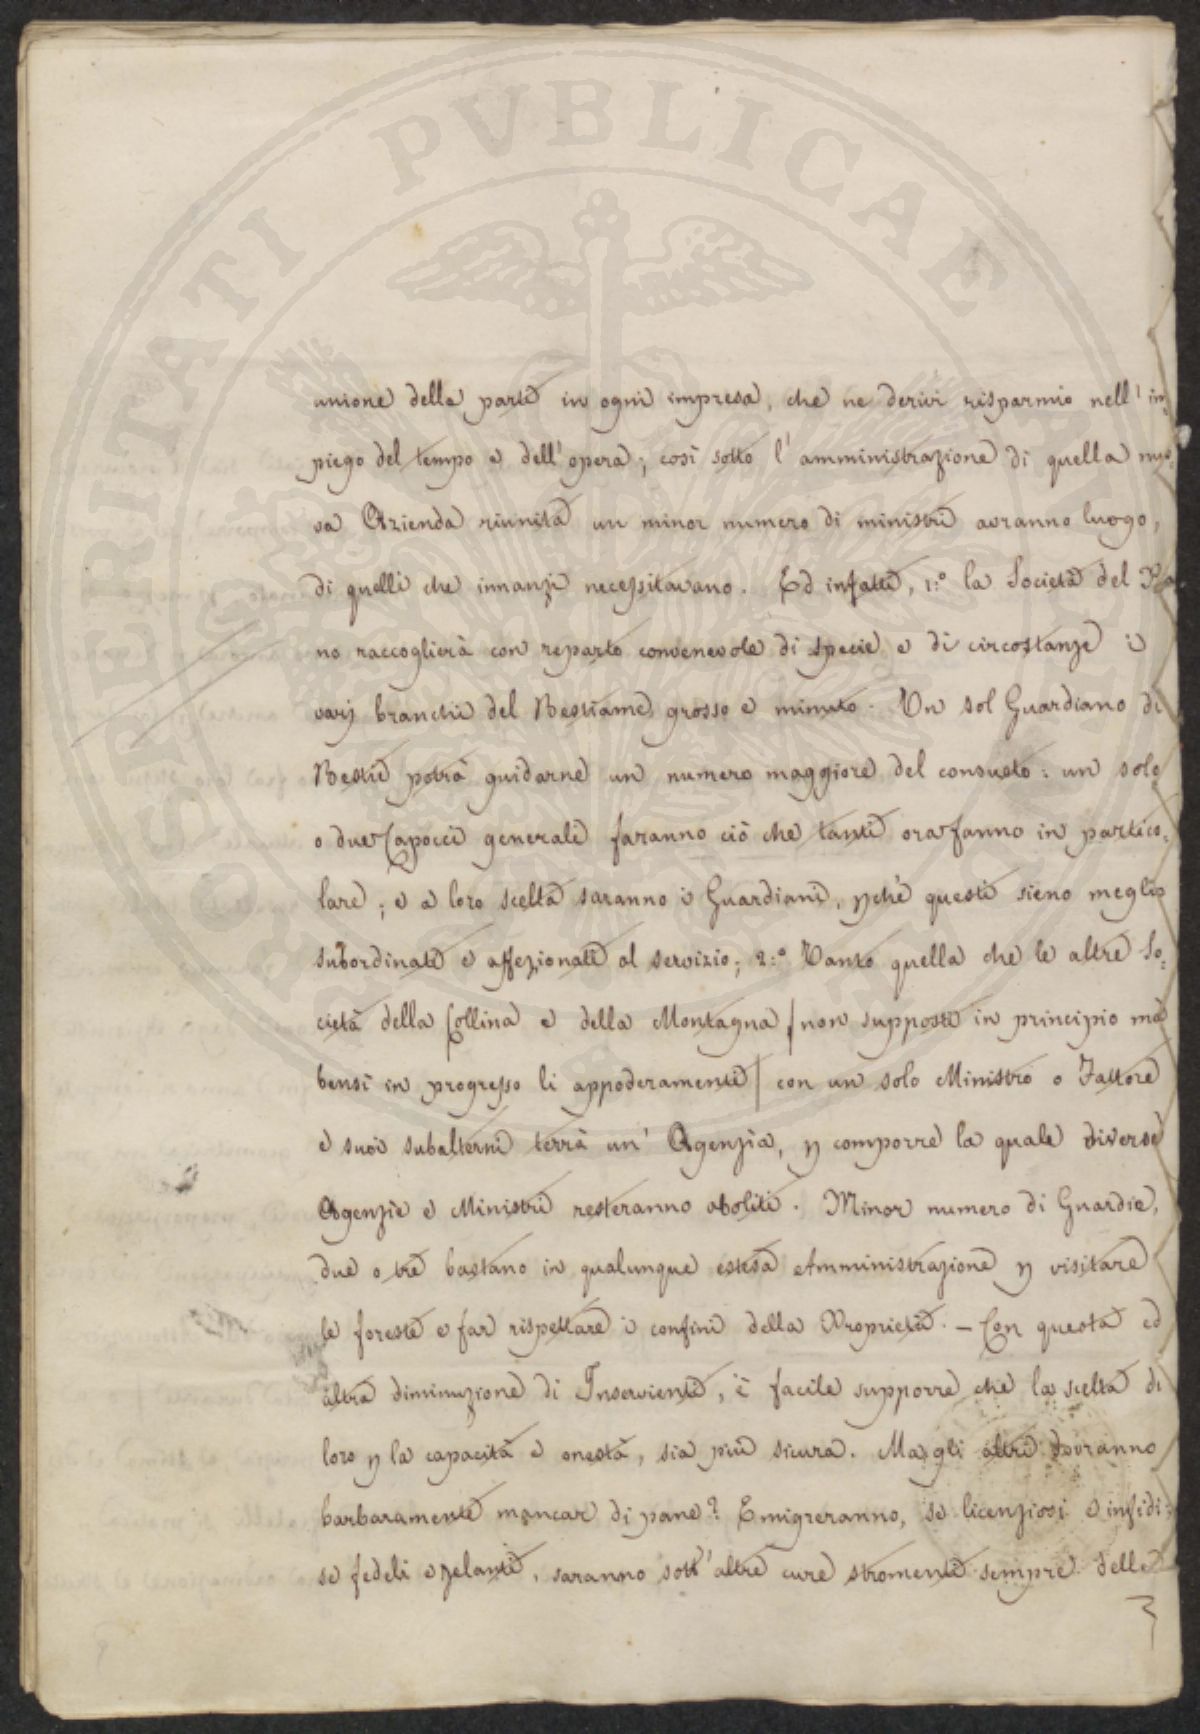 PROSPERITATI PVBLICAE
unione delle parti in ogni impresa, che ne derivi risparmio nell' im=
piego del tempo e dell' opera; così sotto l' amministrazione di quella nuo=
va Azienda riunita un minor numero di ministri avranno luogo,
di quelli che innanzi necessitavano. Ed infatti, 1:° la Società del Pia
no raccoglierà con reparto convenevole di specie e di circostanze i
varj branchi del Bestiame grosso e minuto. Un sol Guardiano di
Bestie potrà guidarne un numero maggiore del consueto: un solo
o due Capocci generali faranno ciò che tanti ora fanno in partico=
lare; e a loro scelta saranno i Guardiani, pchè questi sieno meglio
subordinati e affezionati al servizio; 2:° Tanto quella che le altre So=
cietà della Collina e della Montagna / non supposti in principio ma
bensì in progresso li appoderamenti / con un solo Ministro o Fattore
e suoi subalterni terrà un' Agenzia, p comporre la quale diverse
Agenzie e Ministri resteranno aboliti. Minor numero di Guardie,
due o tre bastano in qualunque estesa Amministrazione p visitare
le foreste e far rispettare i confini della Proprietà. – Con questa ed
altra diminuzione di Inservienti, è facile supporre che la scelta di
loro p la capacità e onestà, sia più sicura. Ma gli altri dovranno
barbaramente mancar di pane? Emigreranno, se licenziosi e infidi:
se fedeli e zelanti, saranno sott' altre cure stromenti sempre delle